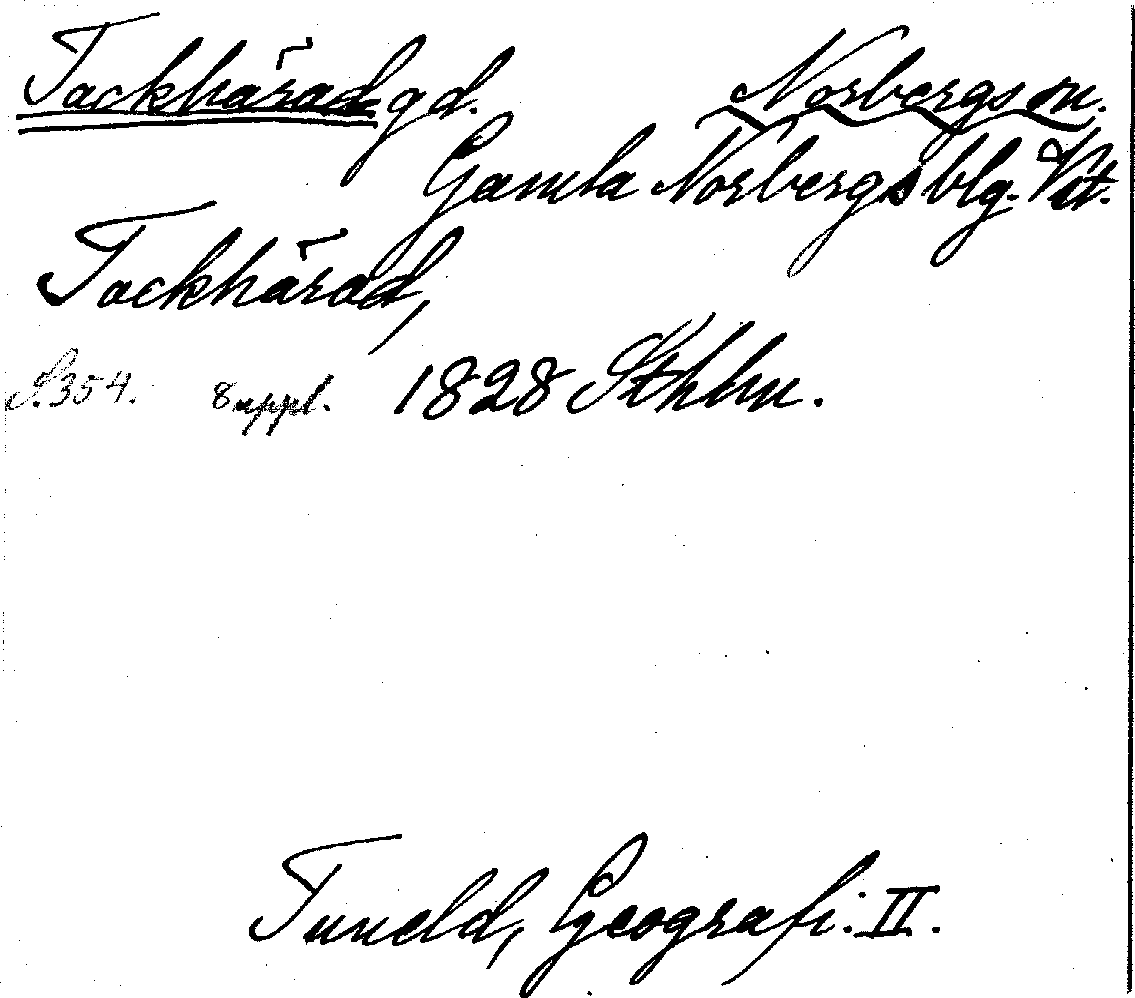 Tackhärad gd. Norbergs sn.
Gamla Norbergs blg. Vstm.
Tackhärad,
S. 354. 8 uppl. 1828 Sthlm.
Tuneld, Geografi. II.